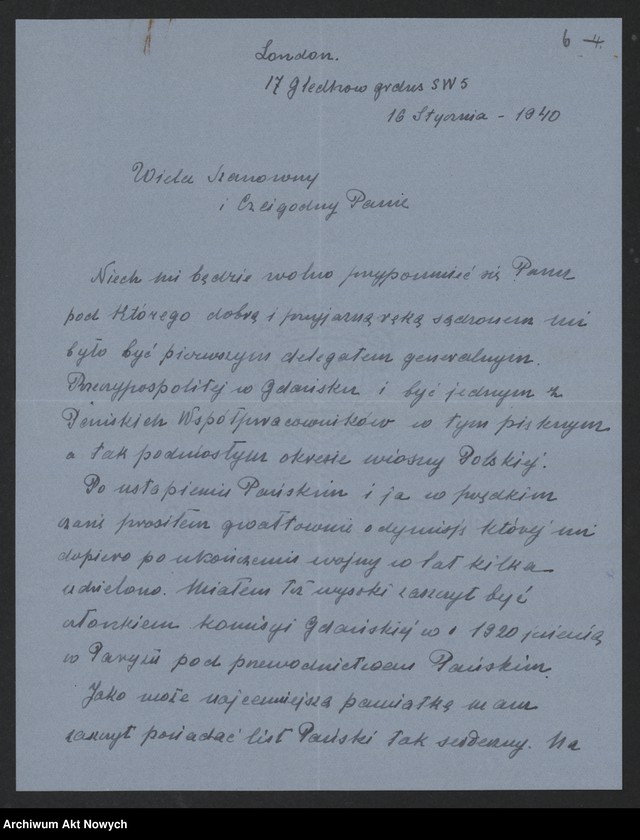 6 4.
London.
17 Gledhow grdns SW5
16 Stycznia - 1940
Wielce Szanowny
i Czcigodny Panie
Niech mi będzie wolno przypomnieć się Panu
pod którego dobrą i przyjazną ręką sądzonem mi
było być pierwszym delegatem generalnym
Rzeczypospolitej w Gdańsku i być jednym z
Pańskich Współpracowników w tym pięknym
a tak podniosłym okresie wiosny Polskiej.
Po ustąpieniu Pańskim i ja w prędkim
czasie prosiłem gwałtownie o dymisję której mi
dopiero po ukończeniu wojny w lat kilka
udzielono. Miałem też wysoki zaszczyt być
członkiem Komisyi Gdańskiej w 1920 jesienią
w Paryżu pod przewodnictwem Pańskim.
Jako może najcenniejszą pamiątką mam
zaszczyt posiadać list Pański tak serdeczny. Na
Archiwum Akt Nowych